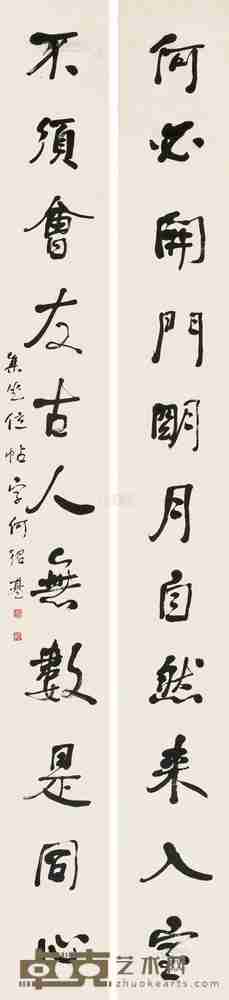 何必開門明月自然來入室
不須會友古人無數是同心
集坐位帖字何紹基
卓克艺术网
zhuokearts.com